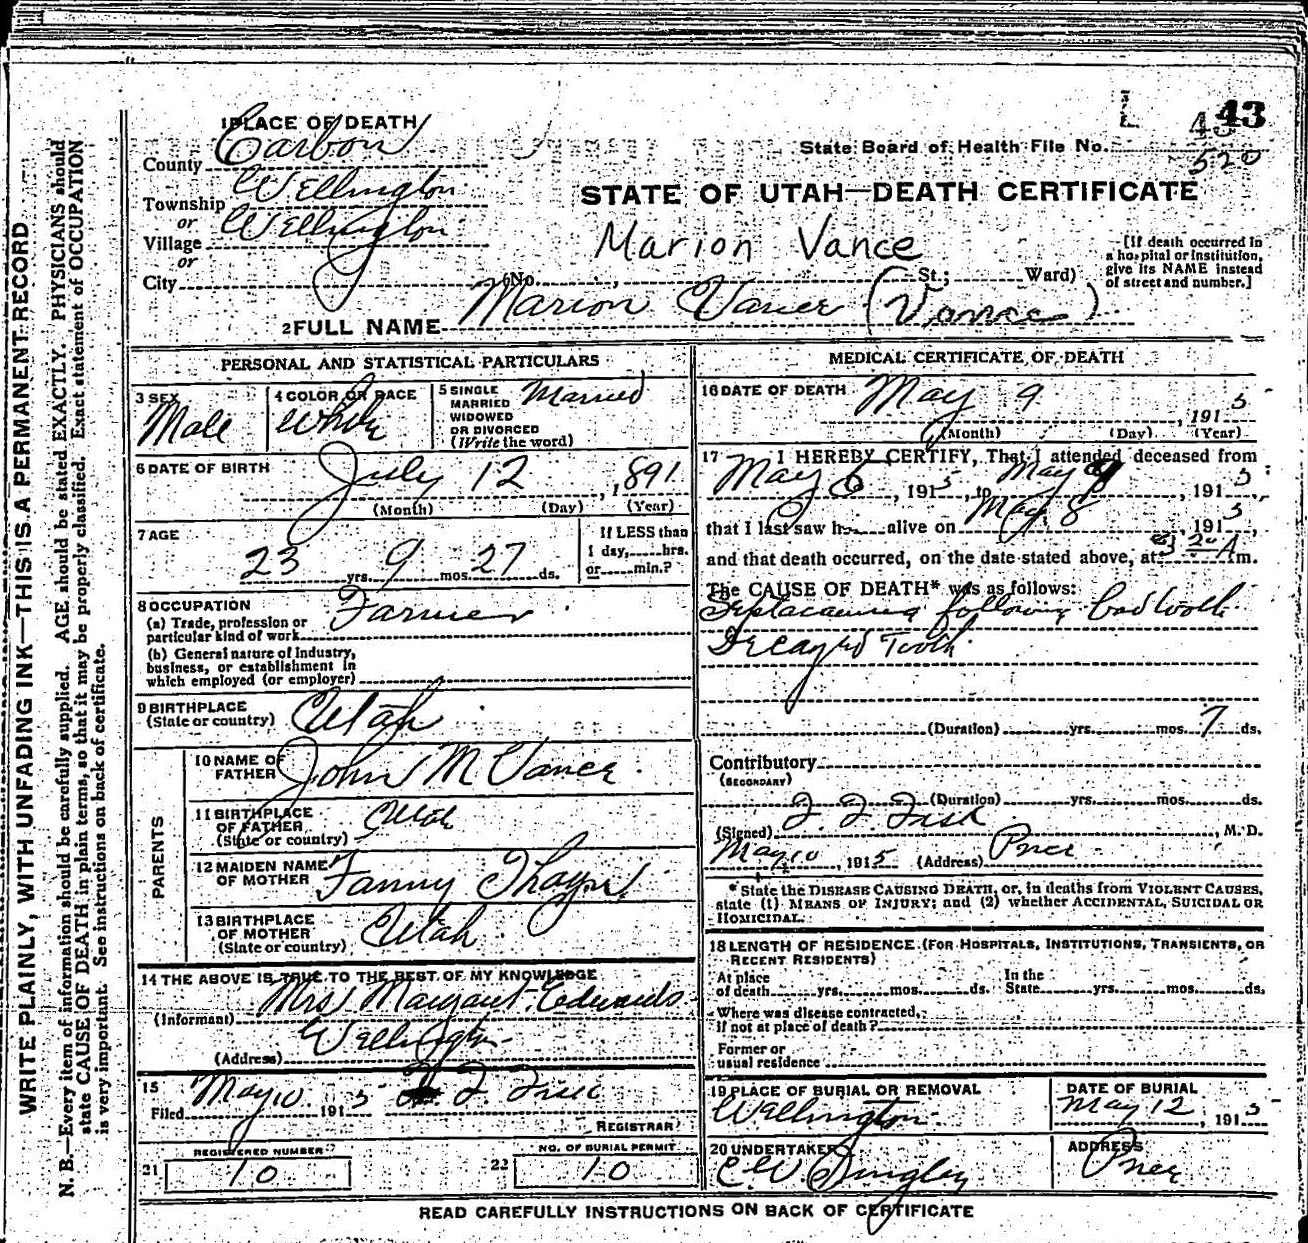 WRITE PLAINLY, WITH UNFADING INK—THIS IS A PERMANENT RECORD
N. B.—Every item of information should be carefully supplied. AGE should be stated EXACTLY. PHYSICIANS should
state CAUSE OF DEATH in plain terms, so that it may be properly classified. Exact statement of OCCUPATION
is very important. See instructions on back of certificate.
43
1 PLACE OF DEATH
State Board of Health File No.
520
County Carbon
Township Wellington
or
Village Wellington
or
City
STATE OF UTAH—DEATH CERTIFICATE
Marion Vance
(No. , St.; Ward)
[If death occurred in
a hospital or institution,
give its NAME instead
of street and number.]
2 FULL NAME Marion Vance (Vance)
PERSONAL AND STATISTICAL PARTICULARS
3 SEX Male
4 COLOR OR RACE White
5 SINGLE
MARRIED
WIDOWED
OR DIVORCED
(Write the word)
Married
6 DATE OF BIRTH
July 12, 1891
(Month) (Day) (Year)
7 AGE
23 yrs. 9 mos. 27 ds.
If LESS than
1 day, hrs.
or min.?
8 OCCUPATION
(a) Trade, profession or
particular kind of work Farmer
(b) General nature of Industry,
business, or establishment in
which employed (or employer)
9 BIRTHPLACE
(State or country) Utah
PARENTS
10 NAME OF
FATHER John M Vance
11 BIRTHPLACE
OF FATHER
(State or country) Utah
12 MAIDEN NAME
OF MOTHER Fanny Thayn
13 BIRTHPLACE
OF MOTHER
(State or country) Utah
14 THE ABOVE IS TRUE TO THE BEST OF MY KNOWLEDGE
(Informant) Mrs Margaret Edwards
(Address) Wellington
15
Filed May 10 1915 Fisk
REGISTRAR
REGISTERED NUMBER
21 10
NO. OF BURIAL PERMIT
22 10
MEDICAL CERTIFICATE OF DEATH
16 DATE OF DEATH
May 9, 1915
(Month) (Day) (Year)
17 I HEREBY CERTIFY, That I attended deceased from
May 6, 1915, to May 9, 1915,
that I last saw h alive on May 8, 1915,
and that death occurred, on the date stated above, at 3 20 A m.
The CAUSE OF DEATH* was as follows:
following bad tooth
Decayed Tooth
(Duration) yrs. mos. 7 ds.
Contributory
(SECONDARY)
(Duration) yrs. mos. ds.
(Signed) F. F. Fisk, M. D.
May 10, 1915 (Address) Price
* State the DISEASE CAUSING DEATH, or, in deaths from VIOLENT CAUSES,
state (1) MEANS OF INJURY; and (2) whether ACCIDENTAL, SUICIDAL OR
HOMICIDAL.
18 LENGTH OF RESIDENCE (FOR HOSPITALS, INSTITUTIONS, TRANSIENTS, OR
RECENT RESIDENTS)
At place
of death yrs. mos. ds.
In the
State yrs. mos. ds.
Where was disease contracted,
if not at place of death?
Former or
usual residence
19 PLACE OF BURIAL OR REMOVAL
Wellington
DATE OF BURIAL
May 12, 1915
20 UNDERTAKER
C W
ADDRESS
Price
READ CAREFULLY INSTRUCTIONS ON BACK OF CERTIFICATE